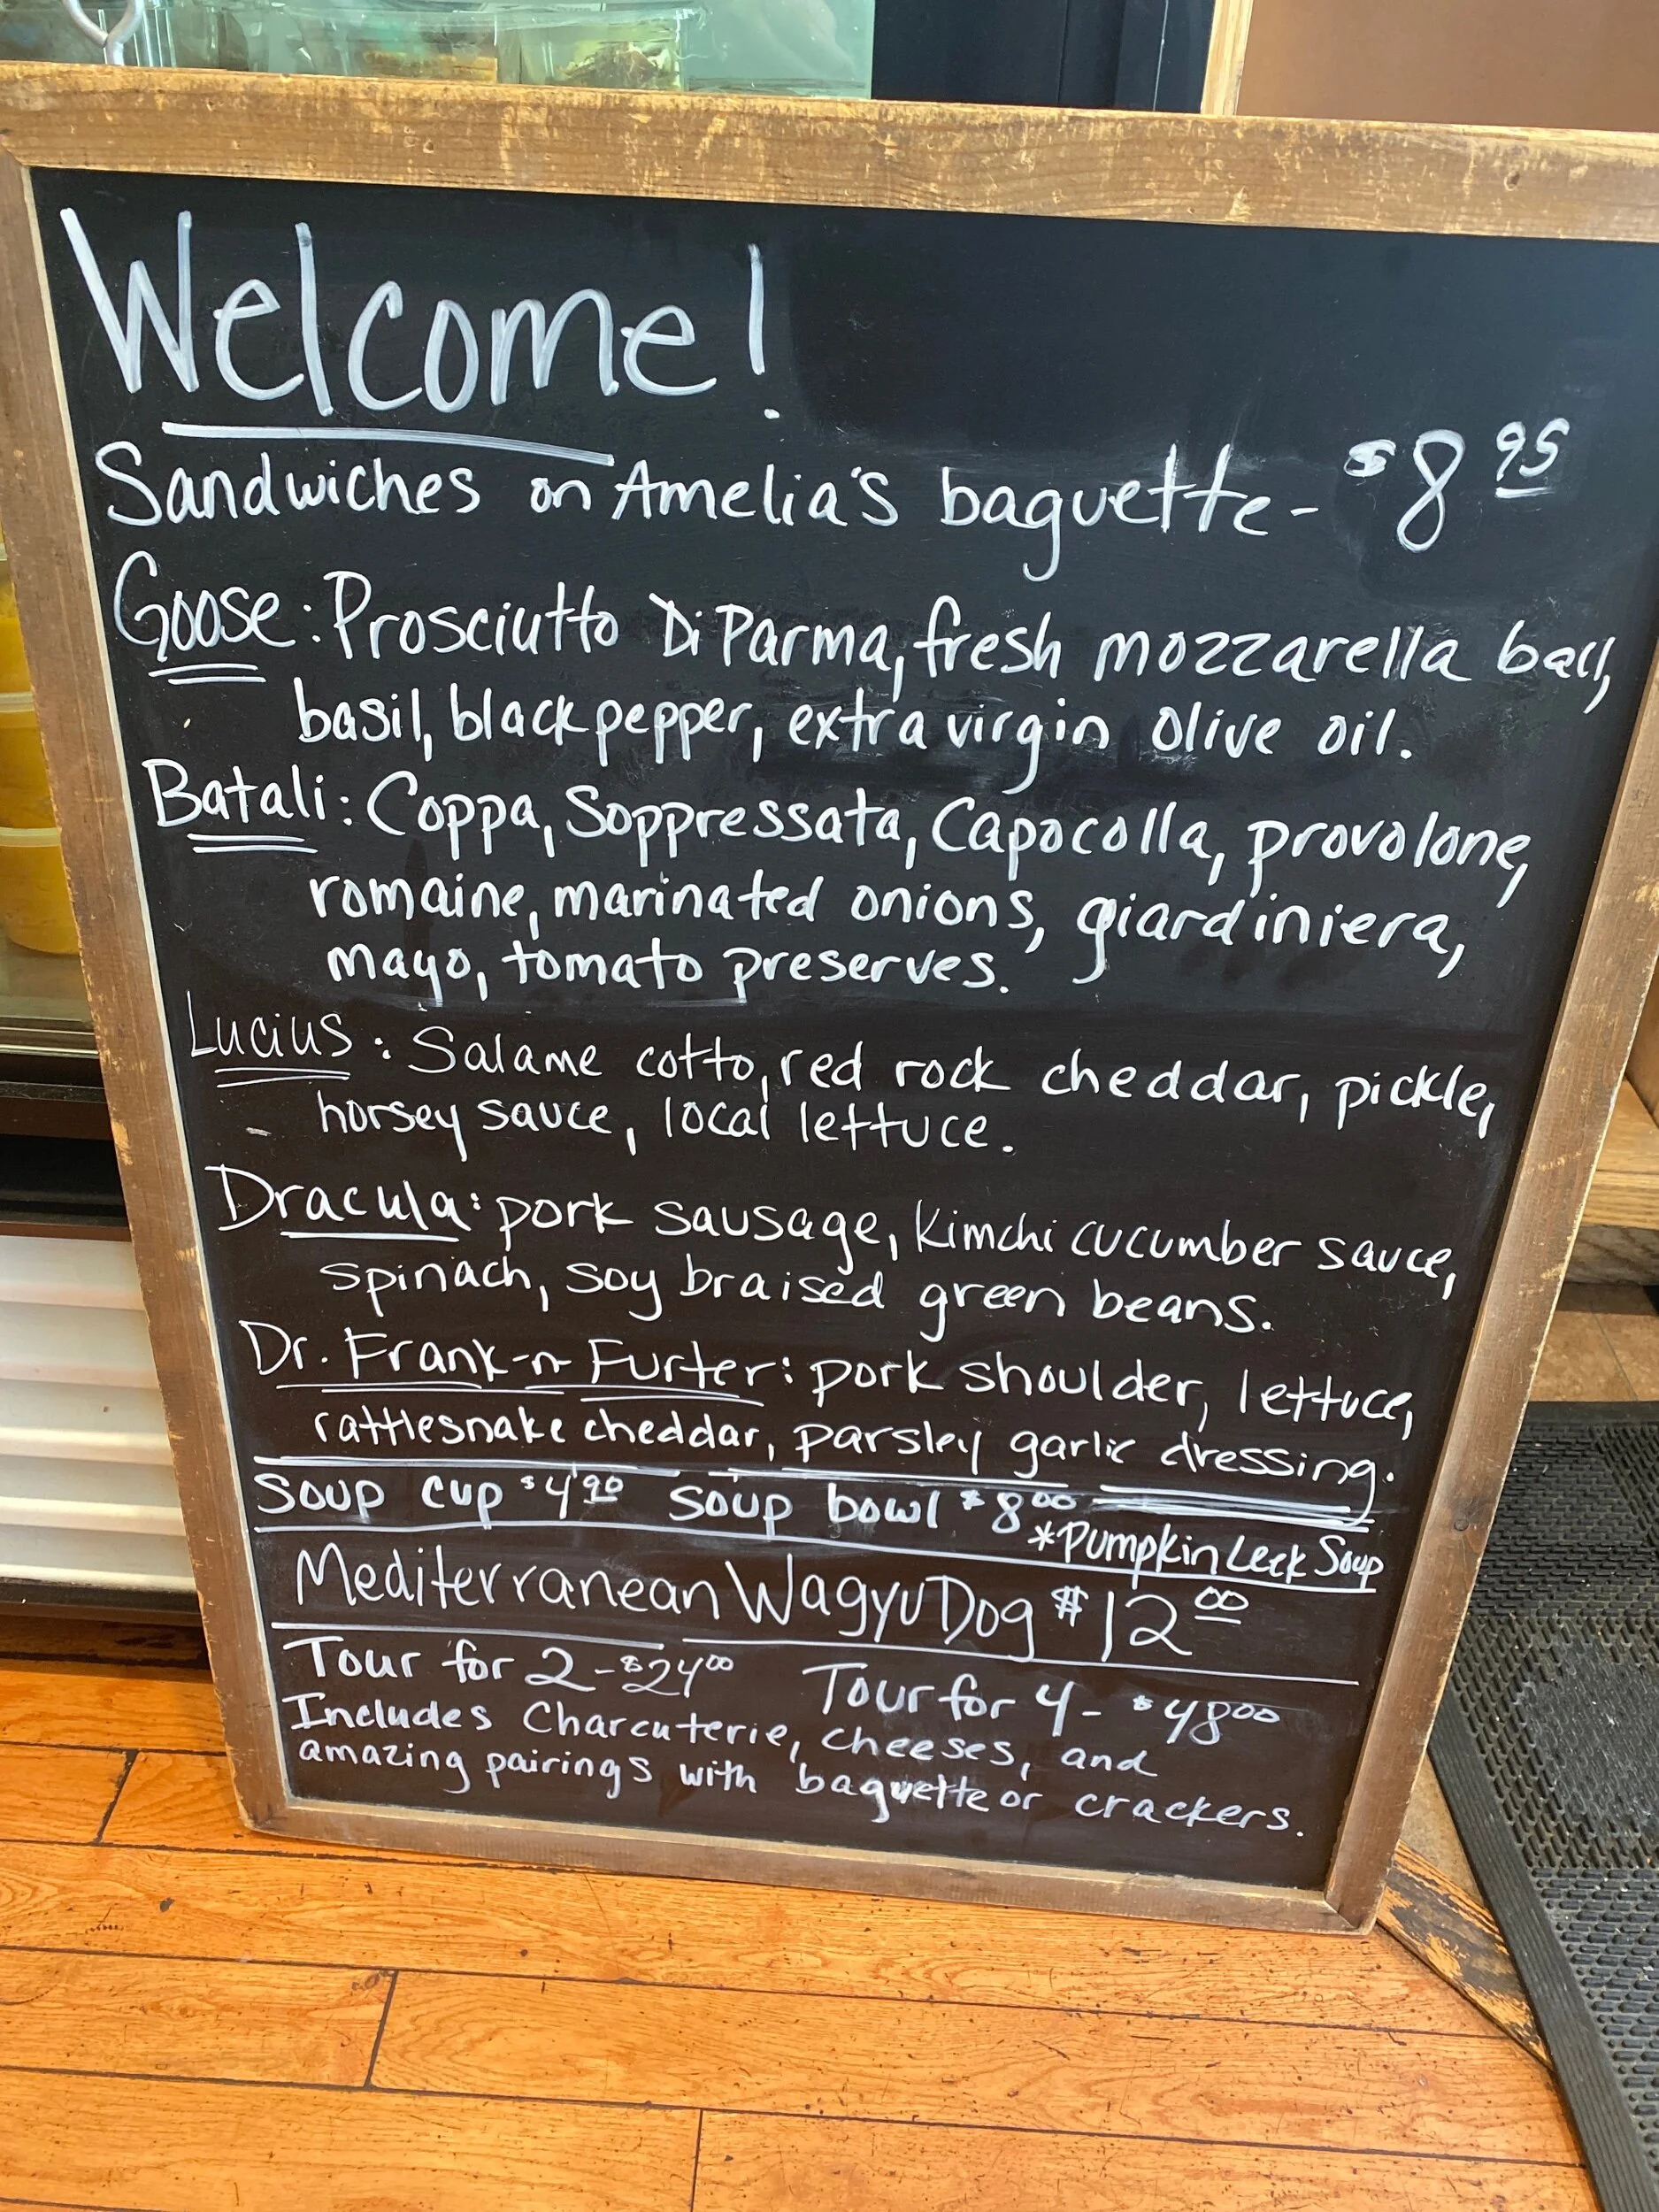 Welcome!
Sandwiches on Amelia's baguette - $8 95
Goose: Prosciutto Di Parma, fresh mozzarella ball,
basil, black pepper, extra virgin olive oil.
Batali: Coppa, Soppressata, Capocolla, provolone,
romaine, marinated onions, giardiniera,
mayo, tomato preserves.
Lucius: Salame cotto, red rock cheddar, pickle,
horsey sauce, local lettuce.
Dracula: pork sausage, kimchi cucumber sauce,
spinach, soy braised green beans.
Dr. Frank-n-Furter: pork shoulder, lettuce,
rattlesnake cheddar, parsley garlic dressing.
Soup cup $4 90 Soup bowl $8 00
*Pumpkin Leek Soup
Mediterranean Wagyu Dog $12 00
Tour for 2 - $24 00 Tour for 4 - $48 00
Includes Charcuterie, cheeses, and
amazing pairings with baguette or crackers.